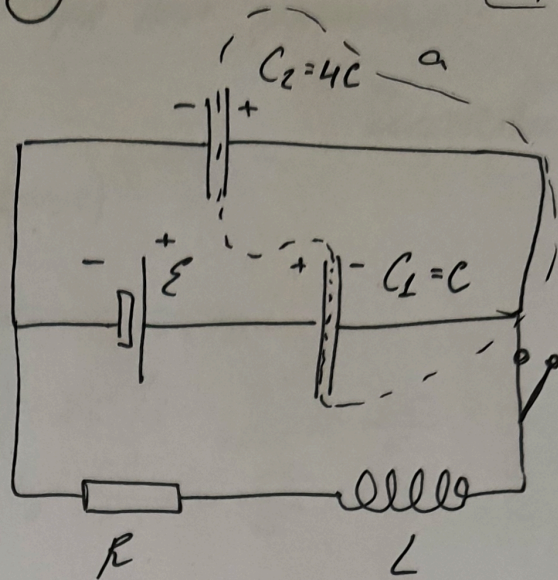 C₂=4C a
- +
- + ℰ + - C₁=C
R L